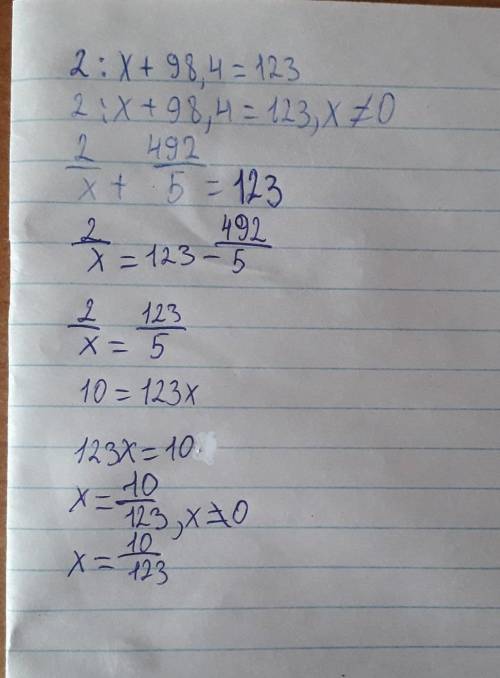 2 : x + 98,4 = 123
2 : x + 98,4 = 123, x ≠ 0
2/x + 492/5 = 123
2/x = 123 - 492/5
2/x = 123/5
10 = 123x
123x = 10
x = 10/123, x ≠ 0
x = 10/123